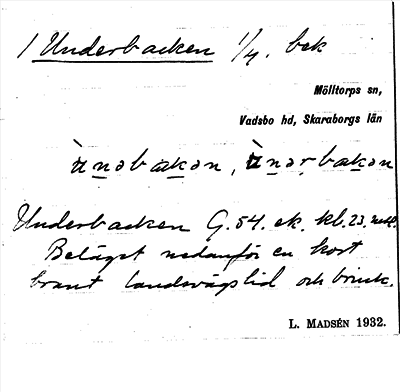 1 Underbacken 1/4. bek
Mölltorps sn,
Vadsbo hd, Skaraborgs län
Underbacken G. 54. ek. kb. 23.
Beläget nedanför en kort
brant landsvägslid och brink.
L. MADSÉN 1932.